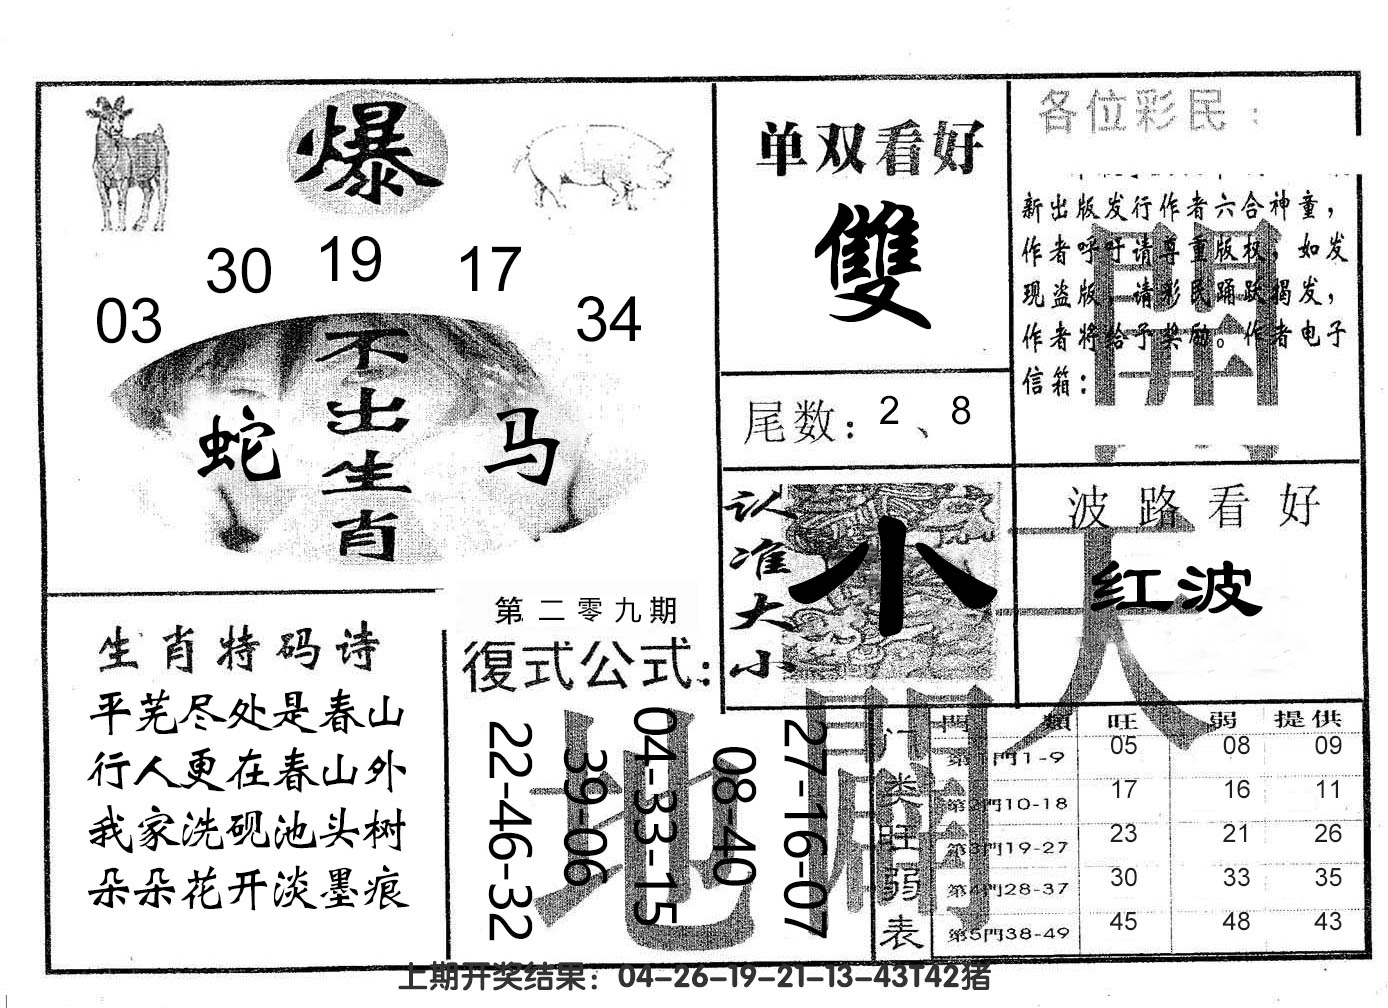 爆
03 30 19 17 34
不出生肖
蛇 马
单双看好
雙
尾数：2、8
认准大小
小
各位彩民：
新出版发行作者六合神童，
作者呼吁请尊重版权，如发
现盗版，请彩民踊跃揭发，
作者将给予奖励。作者电子
信箱：
開
波路看好
红波
天
生肖特码诗
平芜尽处是春山
行人更在春山外
我家洗砚池头树
朵朵花开淡墨痕
第二零九期
復式公式：
22-46-32
39-06
04-33-15
08-40
27-16-07
地
門类旺弱表
門類 旺 弱 提供
第1門1-9 05 08 09
第2門10-18 17 16 11
第3門19-27 23 21 26
第4門28-37 30 33 35
第5門38-49 45 48 43
上期开奖结果：04-26-19-21-13-43T42猪